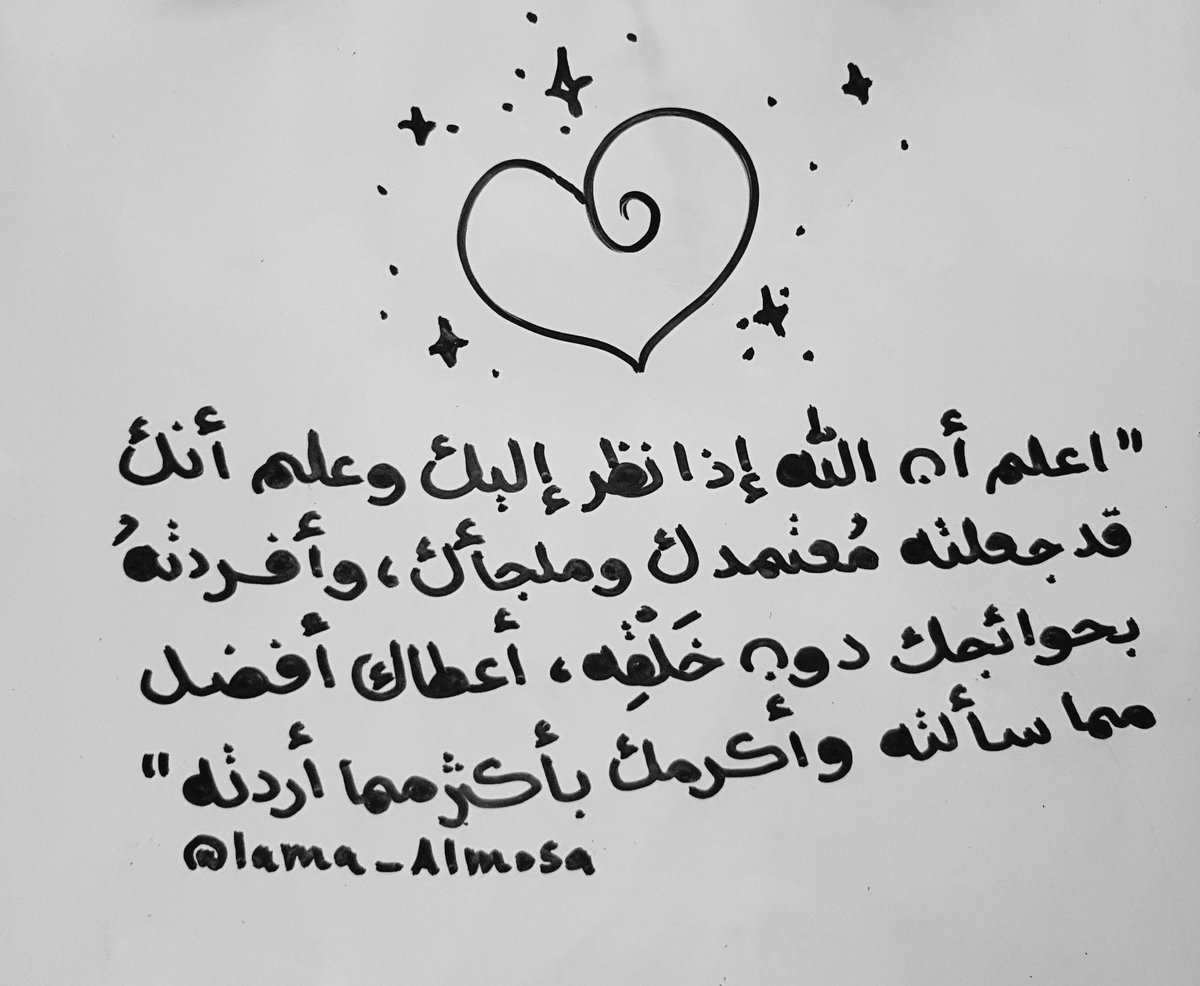 "اعلم أن الله إذا نظر إليك وعلم أنك
قد جعلته مُعتمدك وملجأك، وأفردتهُ
بحوائجك دون خَلْقِه، أعطاك أفضل
مما سألته وأكرمك بأكثر مما أردته"
@lama_Almosa